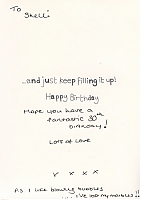 To
Shelli
...and just keep filling it up!
Happy Birthday
Hope you have a
fantastic 30th
birthday!
Lots of Love
x x x x
As I like blowing bubbles
I've lost my marbles!!